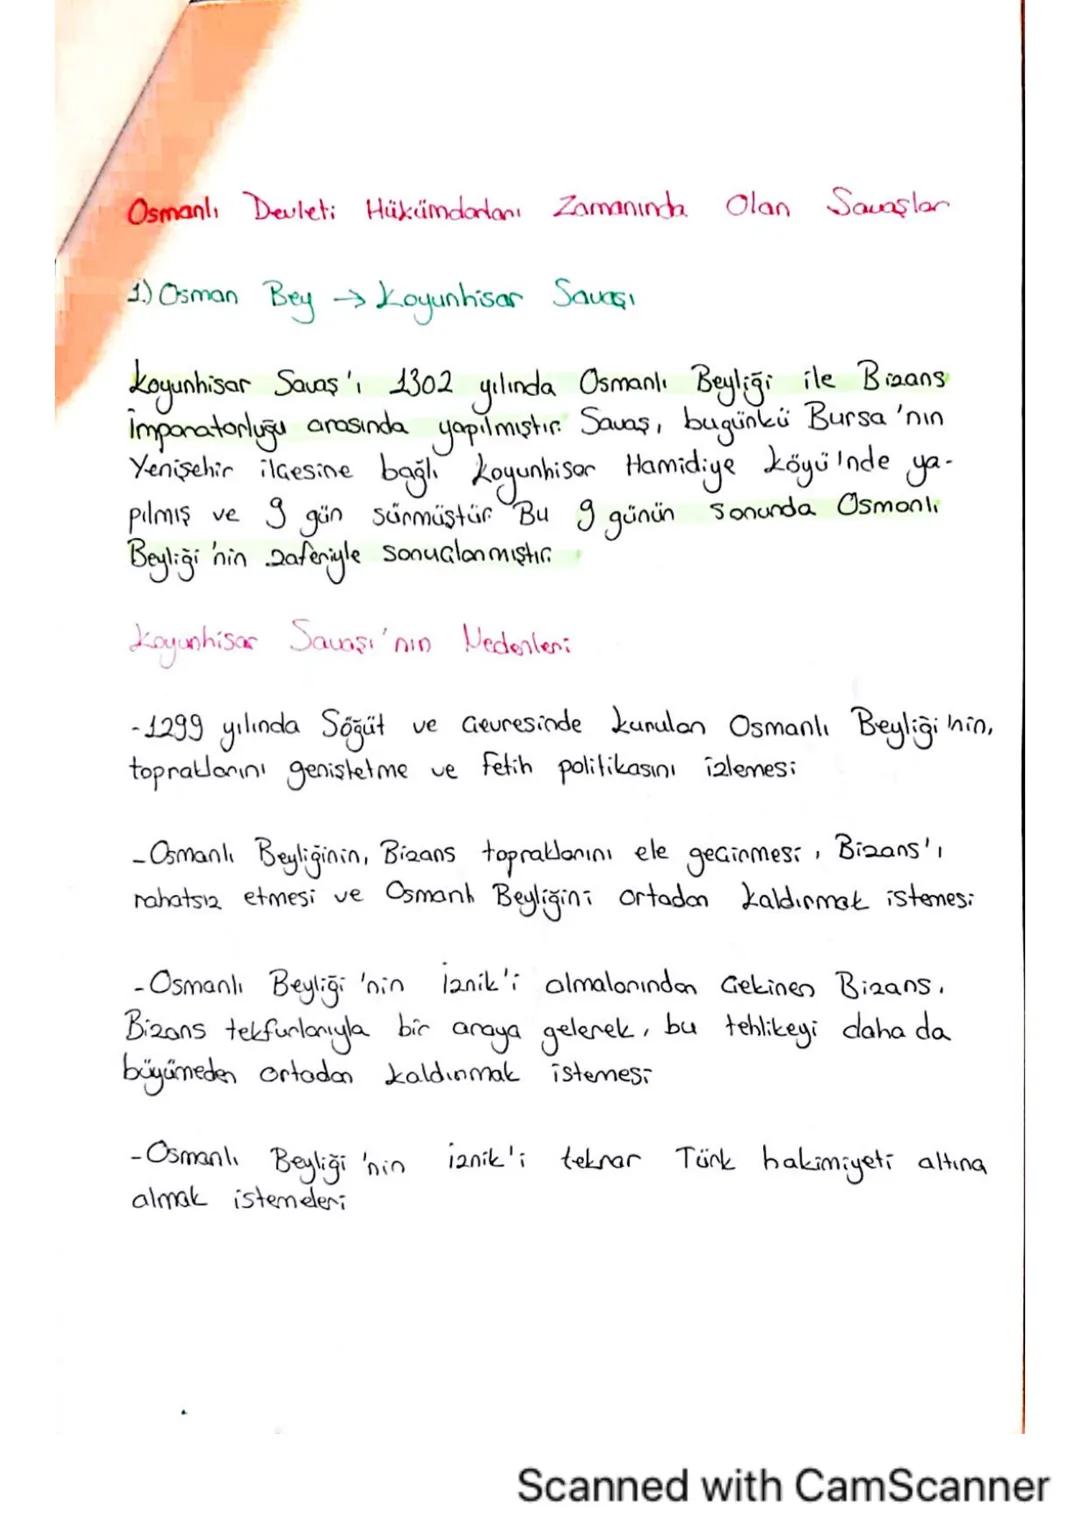 Osmanlı Devleti Hükümdarları Zamanında Olan Savaşlar
1.) Osman Bey → Koyunhisar Savaşı
Koyunhisar Savaş'ı 1302 yılında Osmanlı Beyliği ile Bizans
İmparatorluğu arasında yapılmıştır. Savaş, bugünkü Bursa'nın
Yenişehir ilçesine bağlı Koyunhisar Hamidiye Köyü'nde ya-
pılmış ve 9 gün sürmüştür. Bu 9 günün sonunda Osmanlı
Beyliği'nin zaferiyle sonuçlanmıştır.
Koyunhisar Savaşı'nın Nedenleri
-1299 yılında Söğüt ve çevresinde kurulan Osmanlı Beyliği'nin,
topraklarını genişletme ve fetih politikasını izlemesi
-Osmanlı Beyliğinin, Bizans topraklarını ele geçirmesi, Bizans'ı
rahatsız etmesi ve Osmanlı Beyliğini ortadan kaldırmak istemesi
-Osmanlı Beyliği'nin İznik'i almalarından çekinen Bizans,
Bizans tekfurlarıyla bir araya gelerek, bu tehlikeyi daha da
büyümeden ortadan kaldırmak istemesi
-Osmanlı Beyliği'nin İznik'i tekrar Türk hakimiyeti altına
almak istemeleri
Scanned with CamScanner